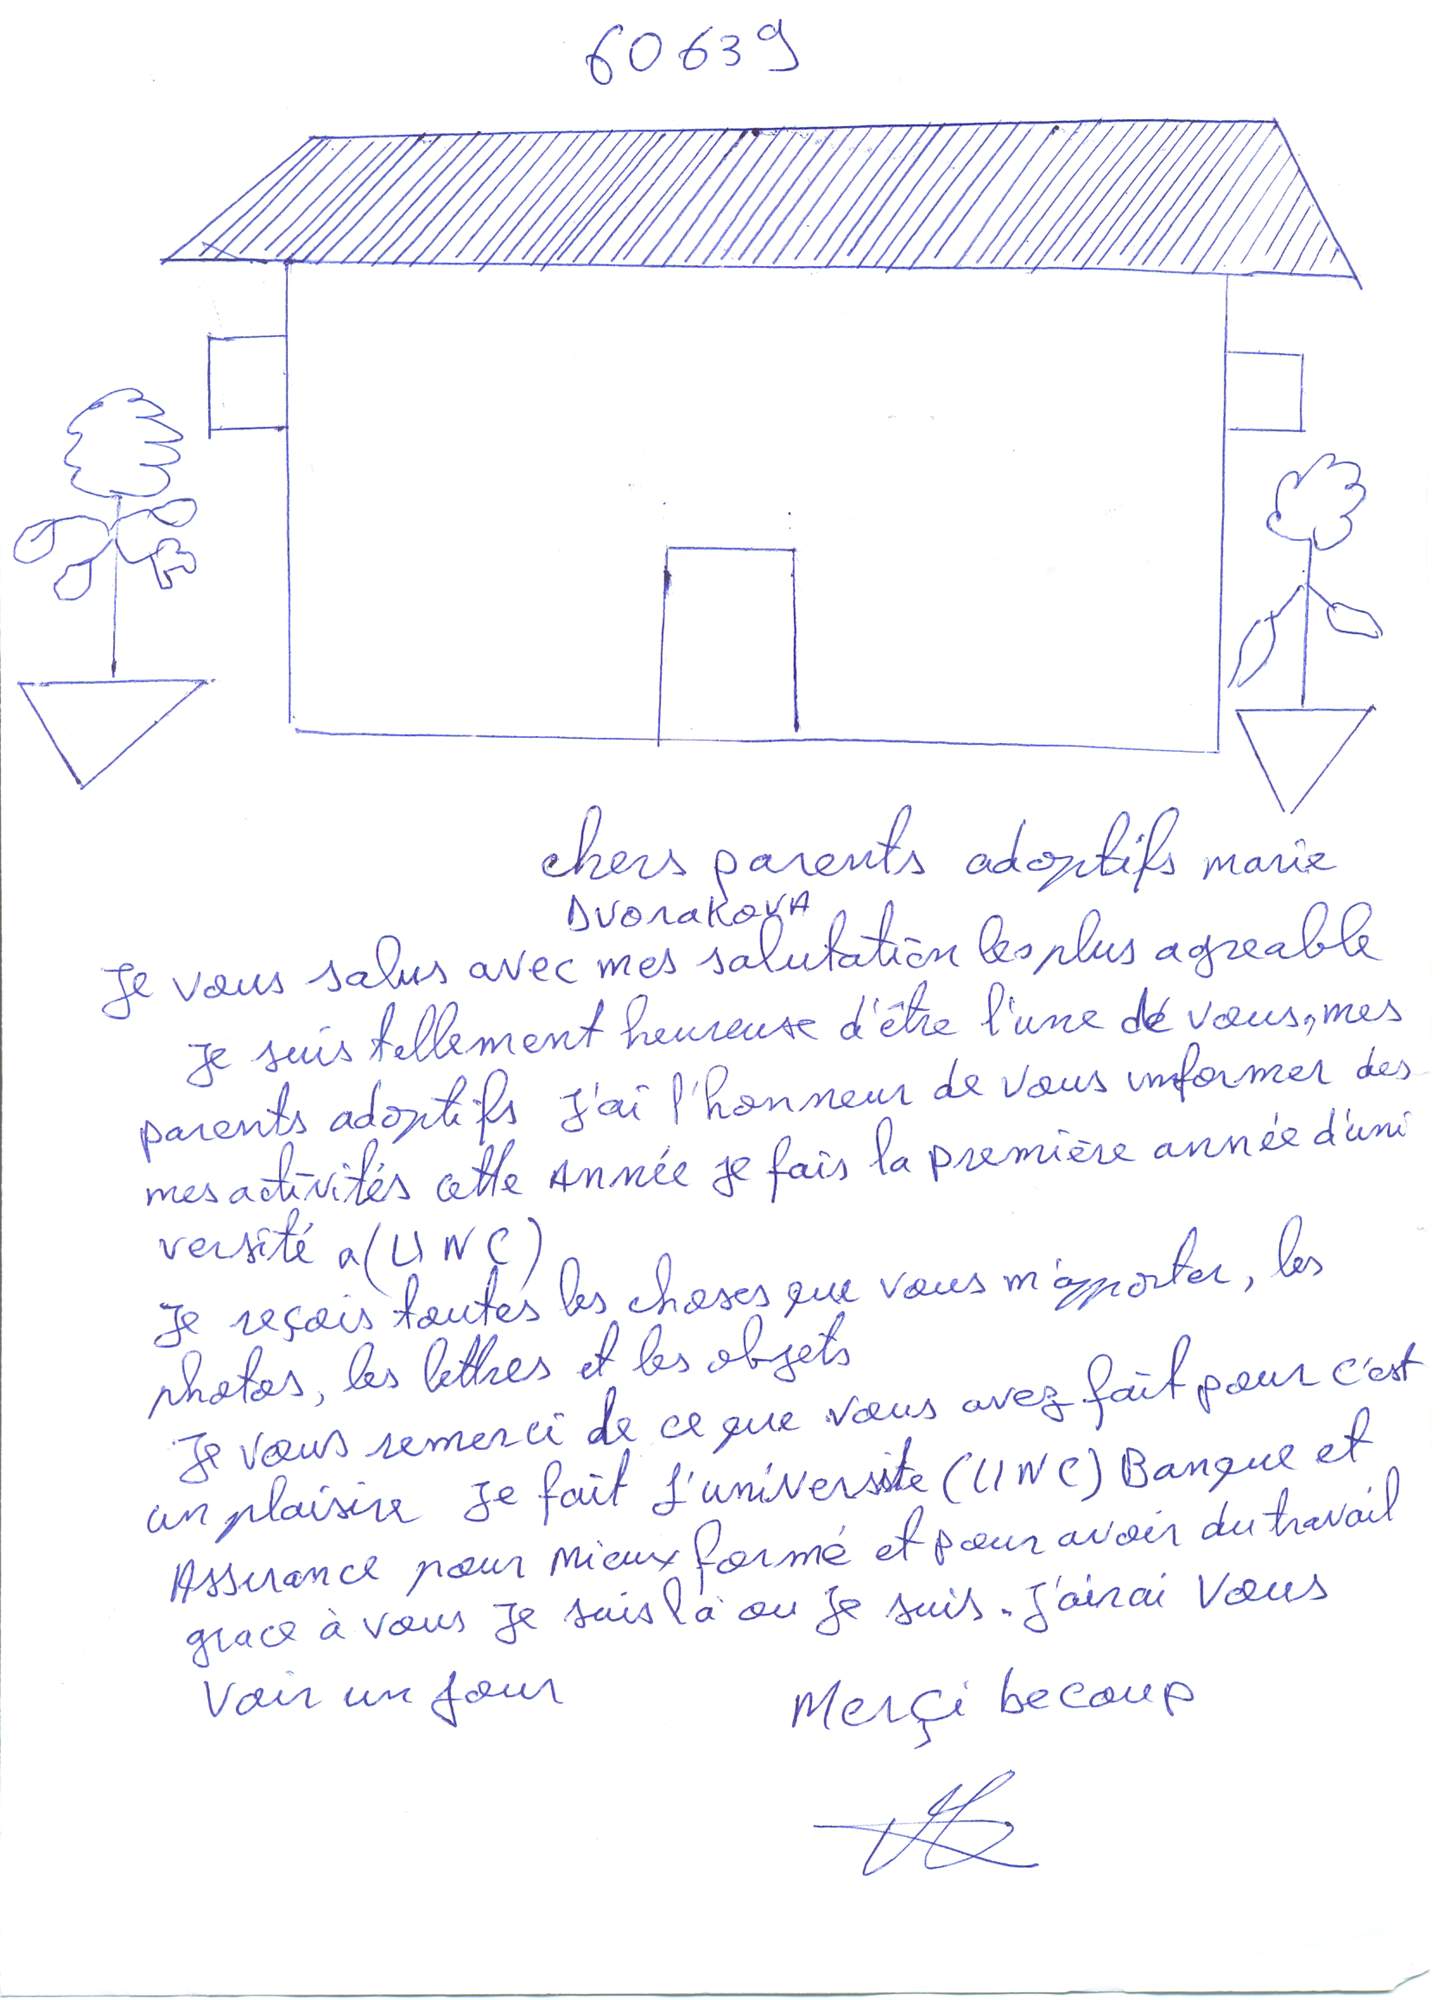 60639
chers parents adoptifs marie
DvorakovA
Je vous salus avec mes salutation les plus agreable
Je suis tellement heureuse d'être l'une de vous, mes
parents adoptifs J'ai l'honneur de vous informer des
mes activités cette Année Je fais la première année d'uni
versité a (UNC)
Je reçois toutes les choses que vous m'apporter, les
photos, les lettres et les objets
Je vous remerci de ce que vous avez fait pour c'est
un plaisire Je fait J'université (UNC) Banque et
Assurance pour mieux formé et pour avoir du travail
grace à vous Je suis là ou Je suis. J'airai Vous
Voir un Jour
Merçi becoup